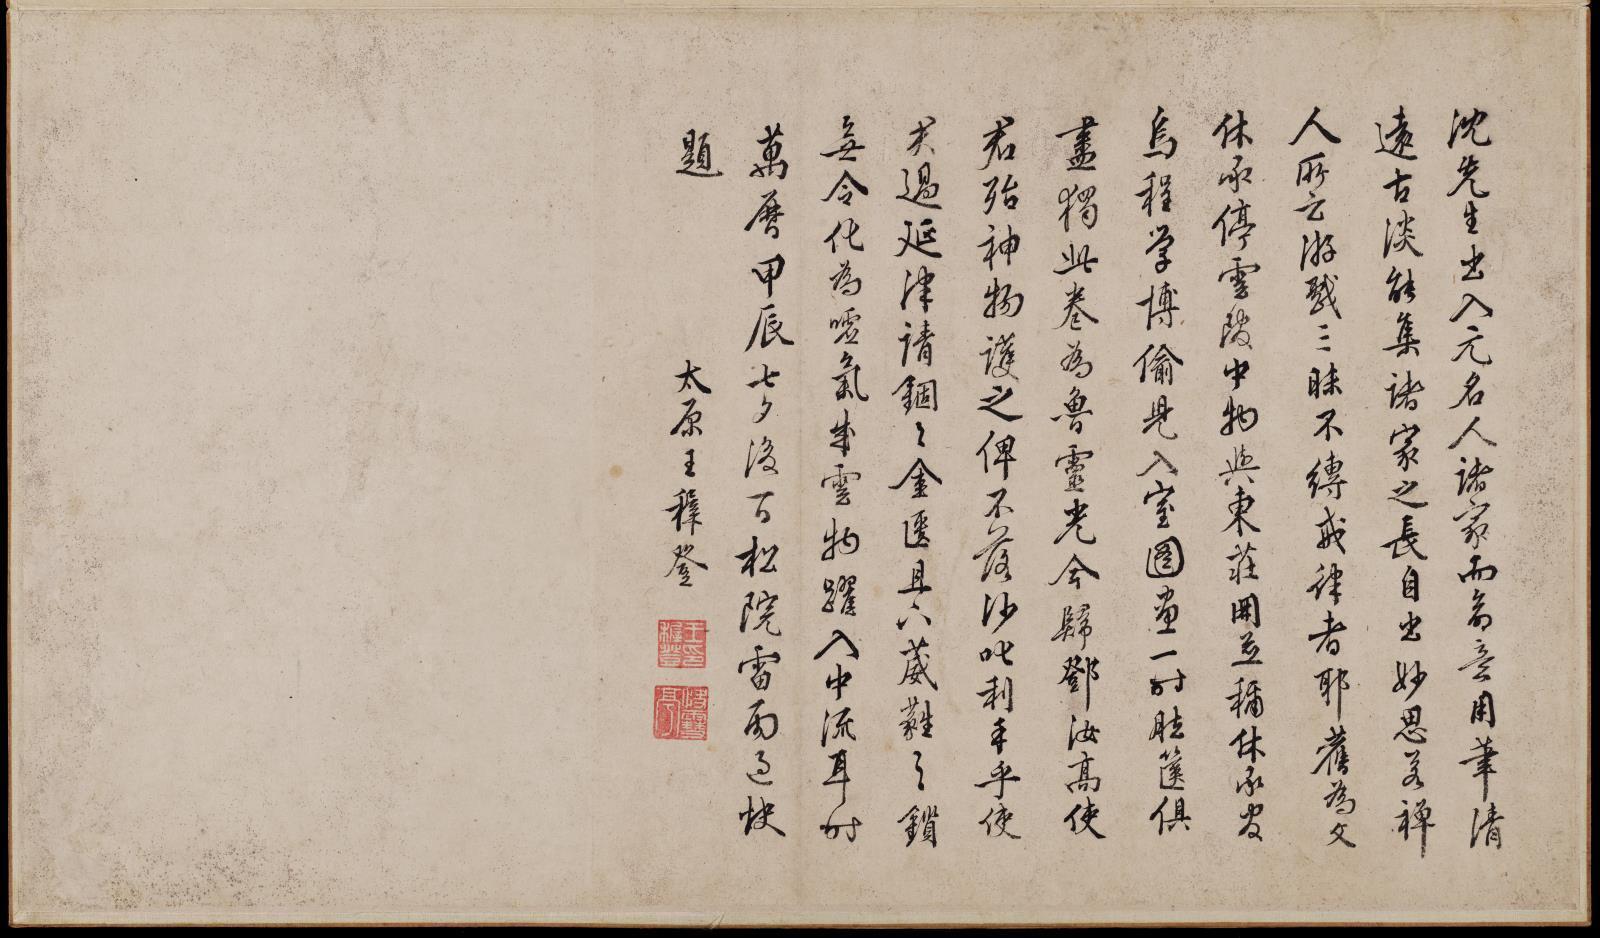 沈先生出入元名人諸家而命意用筆清
遠古淡能集諸家之長自出妙思若禪
人所云游戲三昧不縛戒律者耶舊為文
休承停雲館中物與東莊冊並稱休承官
烏程學博偷兒入室圖畫一時胠篋俱
盡獨此卷為魯靈光今歸鄧汝高使
君殆神物護之俾不落沙叱利手乎使
君過延津請錮之金匱且以葳蕤之鎖
無令化為噓氣成雲物躍入中流耳時
萬曆甲辰七夕後百松院雷雨過快
題
太原王穉登